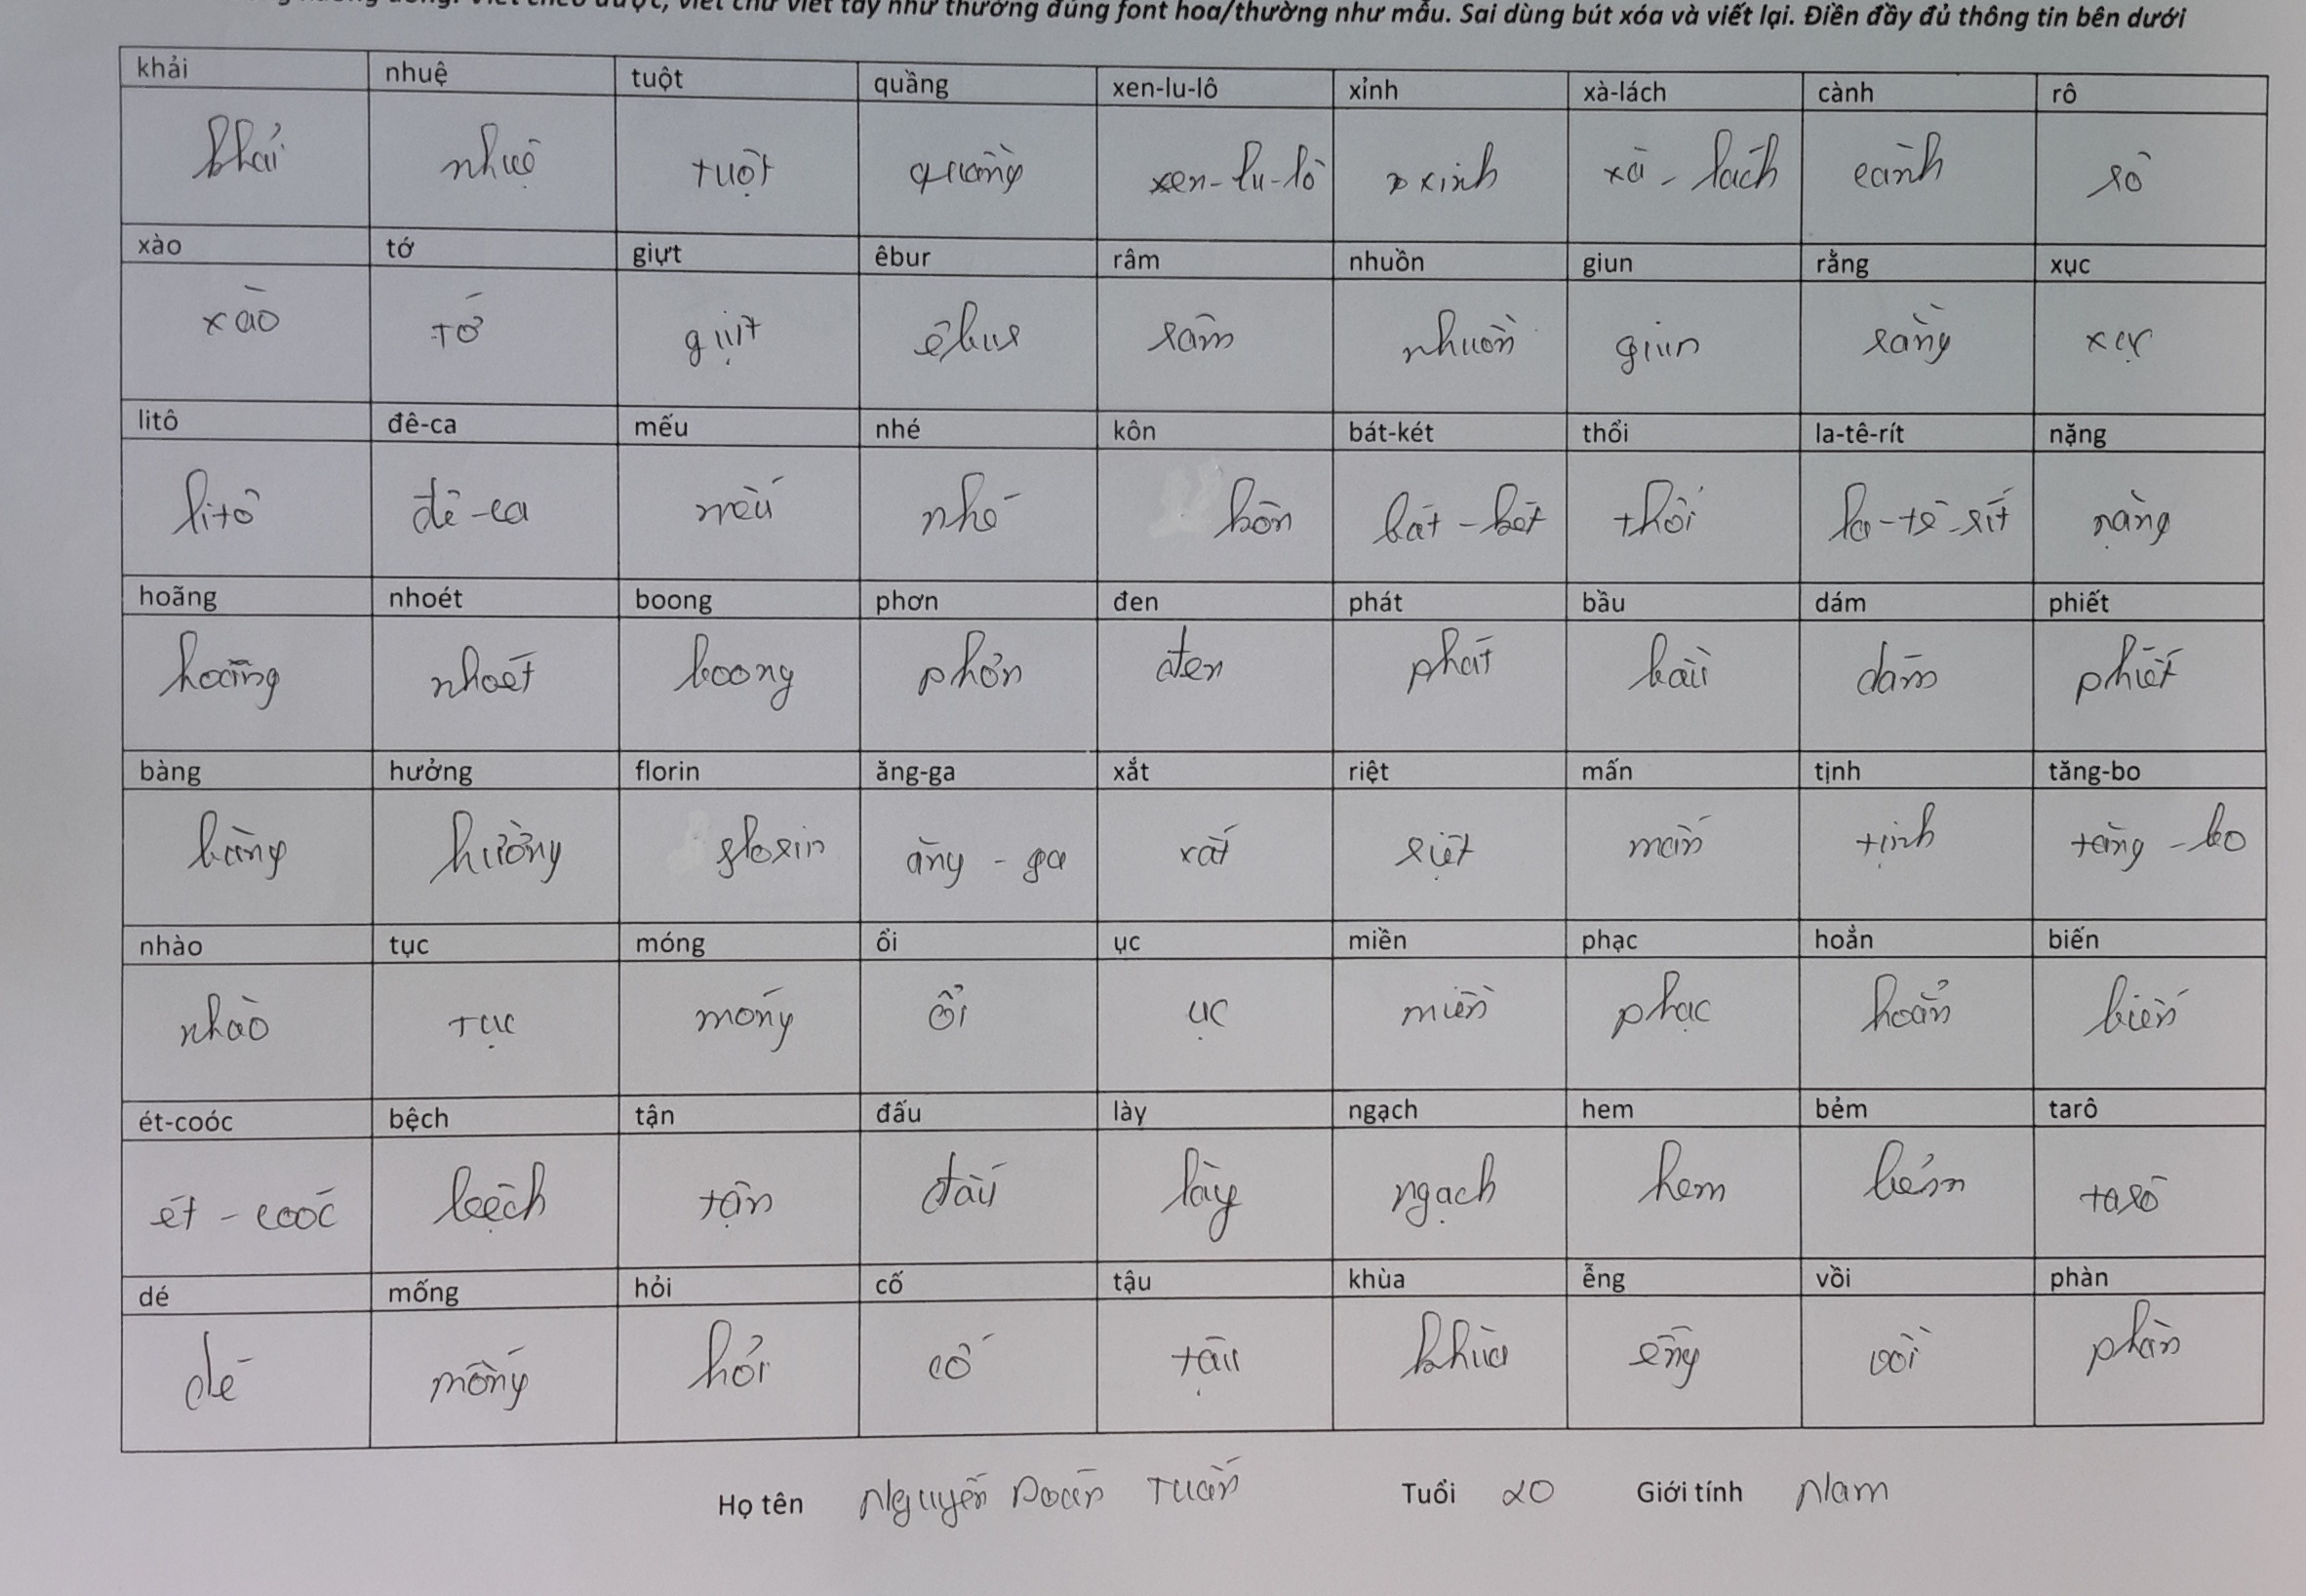 viết chữ viết tay như thường đúng font hoa/thường như mẫu. Sai dùng bút xóa và viết lại. Điền đầy đủ thông tin bên dưới
khải nhuệ tuột quầng xen-lu-lô xỉnh xà-lách cành rô
khải nhuệ tuột quầng xen-lu-lô xỉnh xà-lách cành rô
xào tớ giựt êbur râm nhuồn giun rằng xục
xào tớ giựt êbur râm nhuồn giun rằng xục
litô đê-ca mếu nhé kôn bát-két thổi la-tê-rít nặng
litô đê-ca mếu nhé kôn bát-két thổi la-tê-rít nặng
hoãng nhoét boong phơn đen phát bầu dám phiết
hoãng nhoét boong phơn đen phát bầu dám phiết
bàng hưởng florin ăng-ga xắt riệt mấn tịnh tăng-bo
bàng hưởng florin ăng-ga xắt riệt mấn tịnh tăng-bo
nhào tục móng ổi ục miền phạc hoản biến
nhào tục móng ổi ục miền phạc hoẳn biến
ét-coóc bệch tận đấu lày ngạch hem bẻm tarô
ét-coóc bệch tận đấu lày ngạch hem bẻm tarô
dé mống hỏi cố tậu khùa ễng vồi phàn
dé mống hỏi cố tậu khùa ễng vồi phàn
Họ tên Nguyễn Doãn Tuấn Tuổi 20 Giới tính Nam